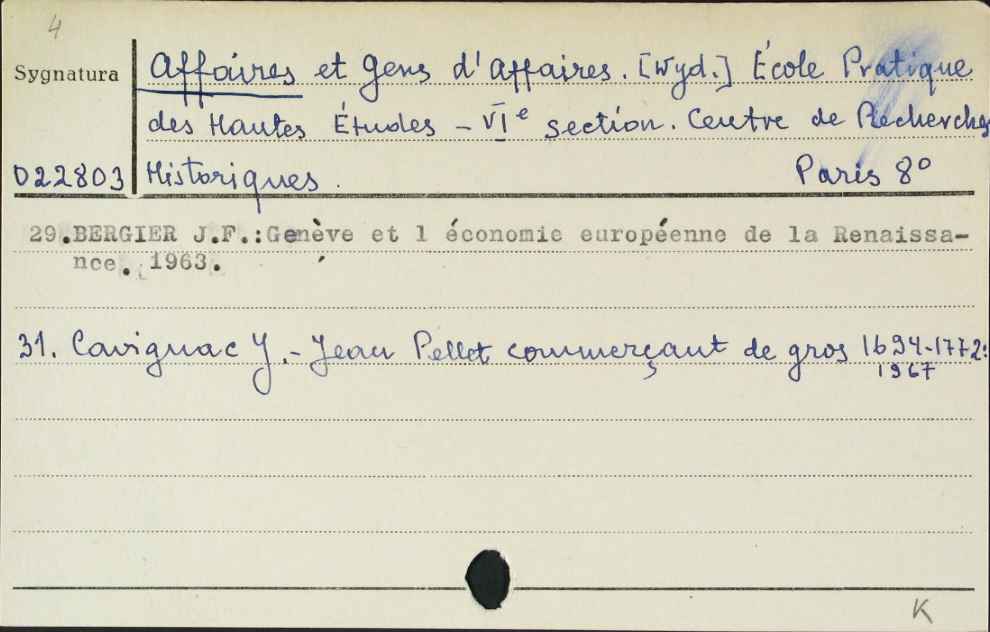 4
Sygnatura
Affaires et gens d'affaires. [Wyd.] École Pratique
des Hautes Études - VIe section. Centre de Recherches
D22803 Historiques. Paris 8º
29.BERGIER J.F.:Genève et l économie européenne de la Renaissa-
nce. 1963.
31. Cavignac J. - Jean Pellet commerçant de gros 1694-1772.
1967
K